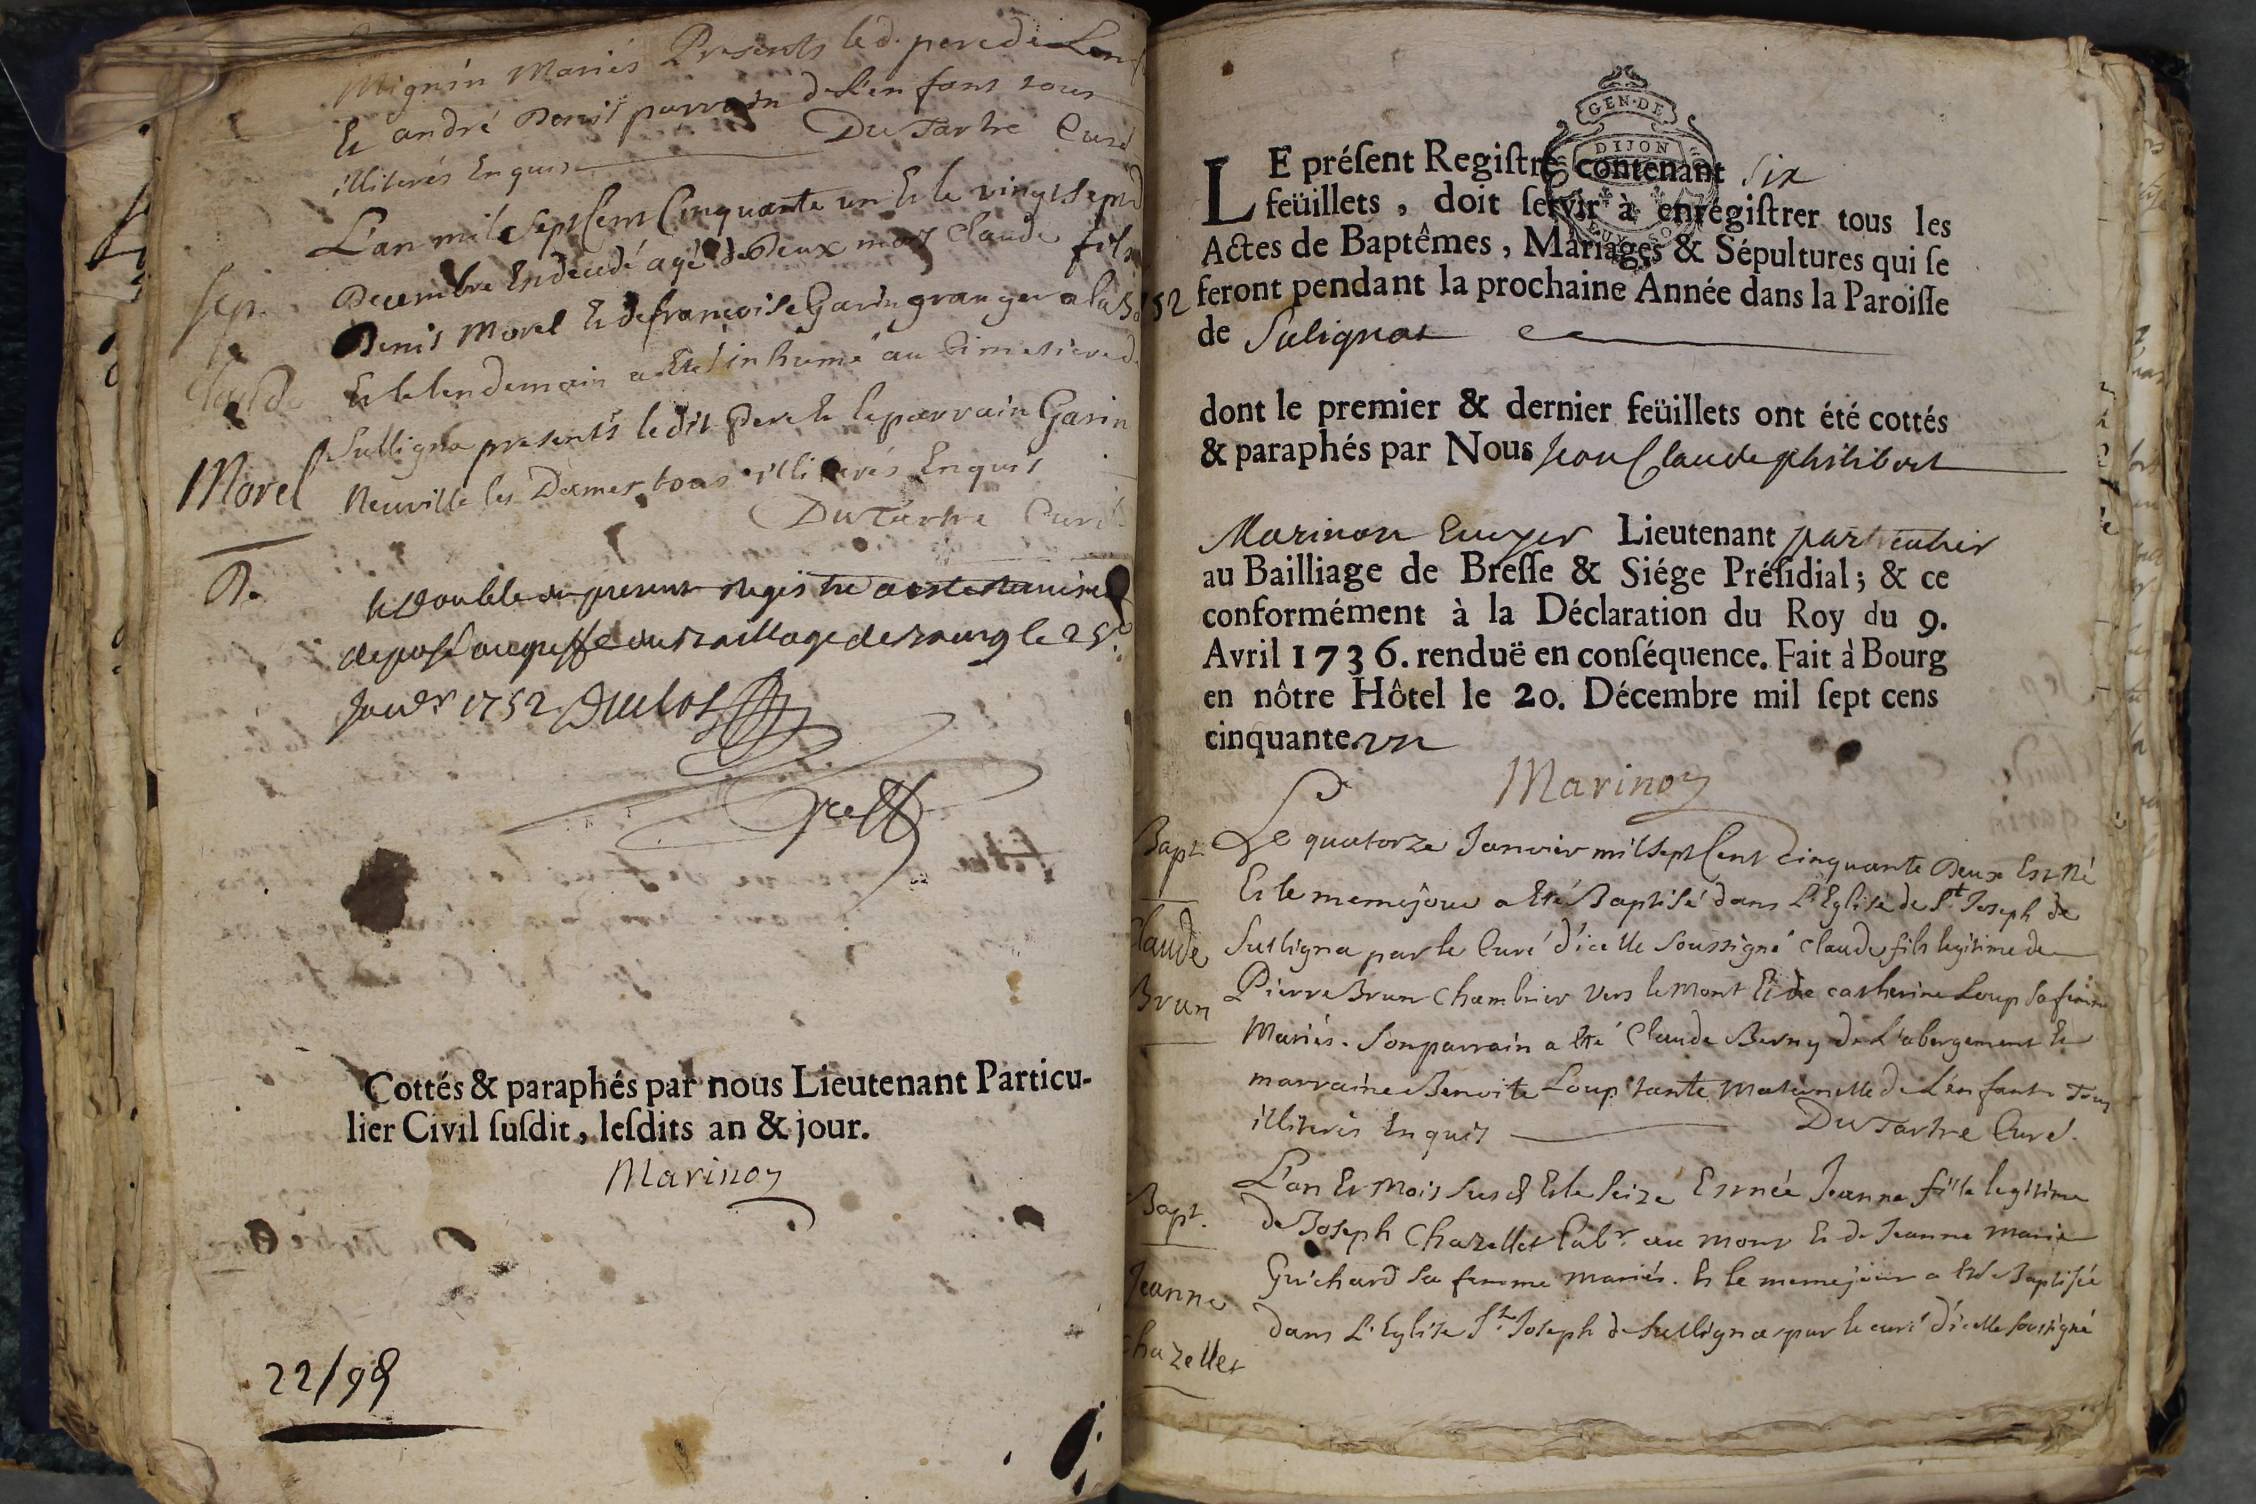 Mignin Mariés Presents led. pere de
Et andré Denis parrain de L'enfant tous
illiterés Enquis DuTartre Curé
L'an mil sept Cent Cinquante un Et le vingt sept
Decembre Est decedé agé de Deux mois Claude fils
Sep.
Denis Morel Et de françoise Garin granger a la
de
Et le lendemain a Eté inhumé au Cimetiere de
Claude
Sulligna presents ledit Pere Et le parrain Garin
Morel
Neuville les Dames tous illiterés Enquis
DuTartre Curé
R.
le Double du present Registre a esté remis
deposé au greffe du Bailliage de Bourg le 25e
Janvr 1752 Duclos
Cottés & paraphés par nous Lieutenant Particu-
lier Civil susdit, lesdits an & jour.
Marinon
22/98
GEN·DE
DIJON
LE présent Registre contenant six
feüillets, doit servir à enregistrer tous les
Actes de Baptêmes, Mariages & Sépultures qui se
feront pendant la prochaine Année dans la Paroisse
52
de Sulignat
dont le premier & dernier feüillets ont été cottés
& paraphés par Nous Jean Claude philibert
Marinon Lieutenant particulier
au Bailliage de Bresse & Siége Présidial; & ce
conformément à la Déclaration du Roy du 9.
Avril 1736. renduë en conséquence. Fait à Bourg
en nôtre Hôtel le 20. Décembre mil sept cens
cinquante un
Marinon
Bapt. Le quatorze Janvier mil sept Cent Cinquante Deux Est Né
Et le meme jour a Eté Baptisé dans L'Eglise de St. Joseph de
Claude Sulligna par le Curé d'icelle soussigné Claude fils legitime de
Brun Pierre Brun Chambrier vers le Mont Et de catherine Loup sa femme
Mariés. Son parrain a Eté Claude Berny de L'abergement Et
marraine Benoite Loup tante Maternelle de L'enfant Tous
illiterés Enquis DuTartre Curé.
Bapt. L'an Et Mois susd Et le seize Est née Jeanne fille legitime
de Joseph Chazellet labr. au mont Et de Jeanne Marie
Jeanne Guichard sa femme mariés. Et le meme jour a Eté Baptisée
Chazellet dans L'Eglise St. Joseph de Sulligna par le curé d'icelle soussigné